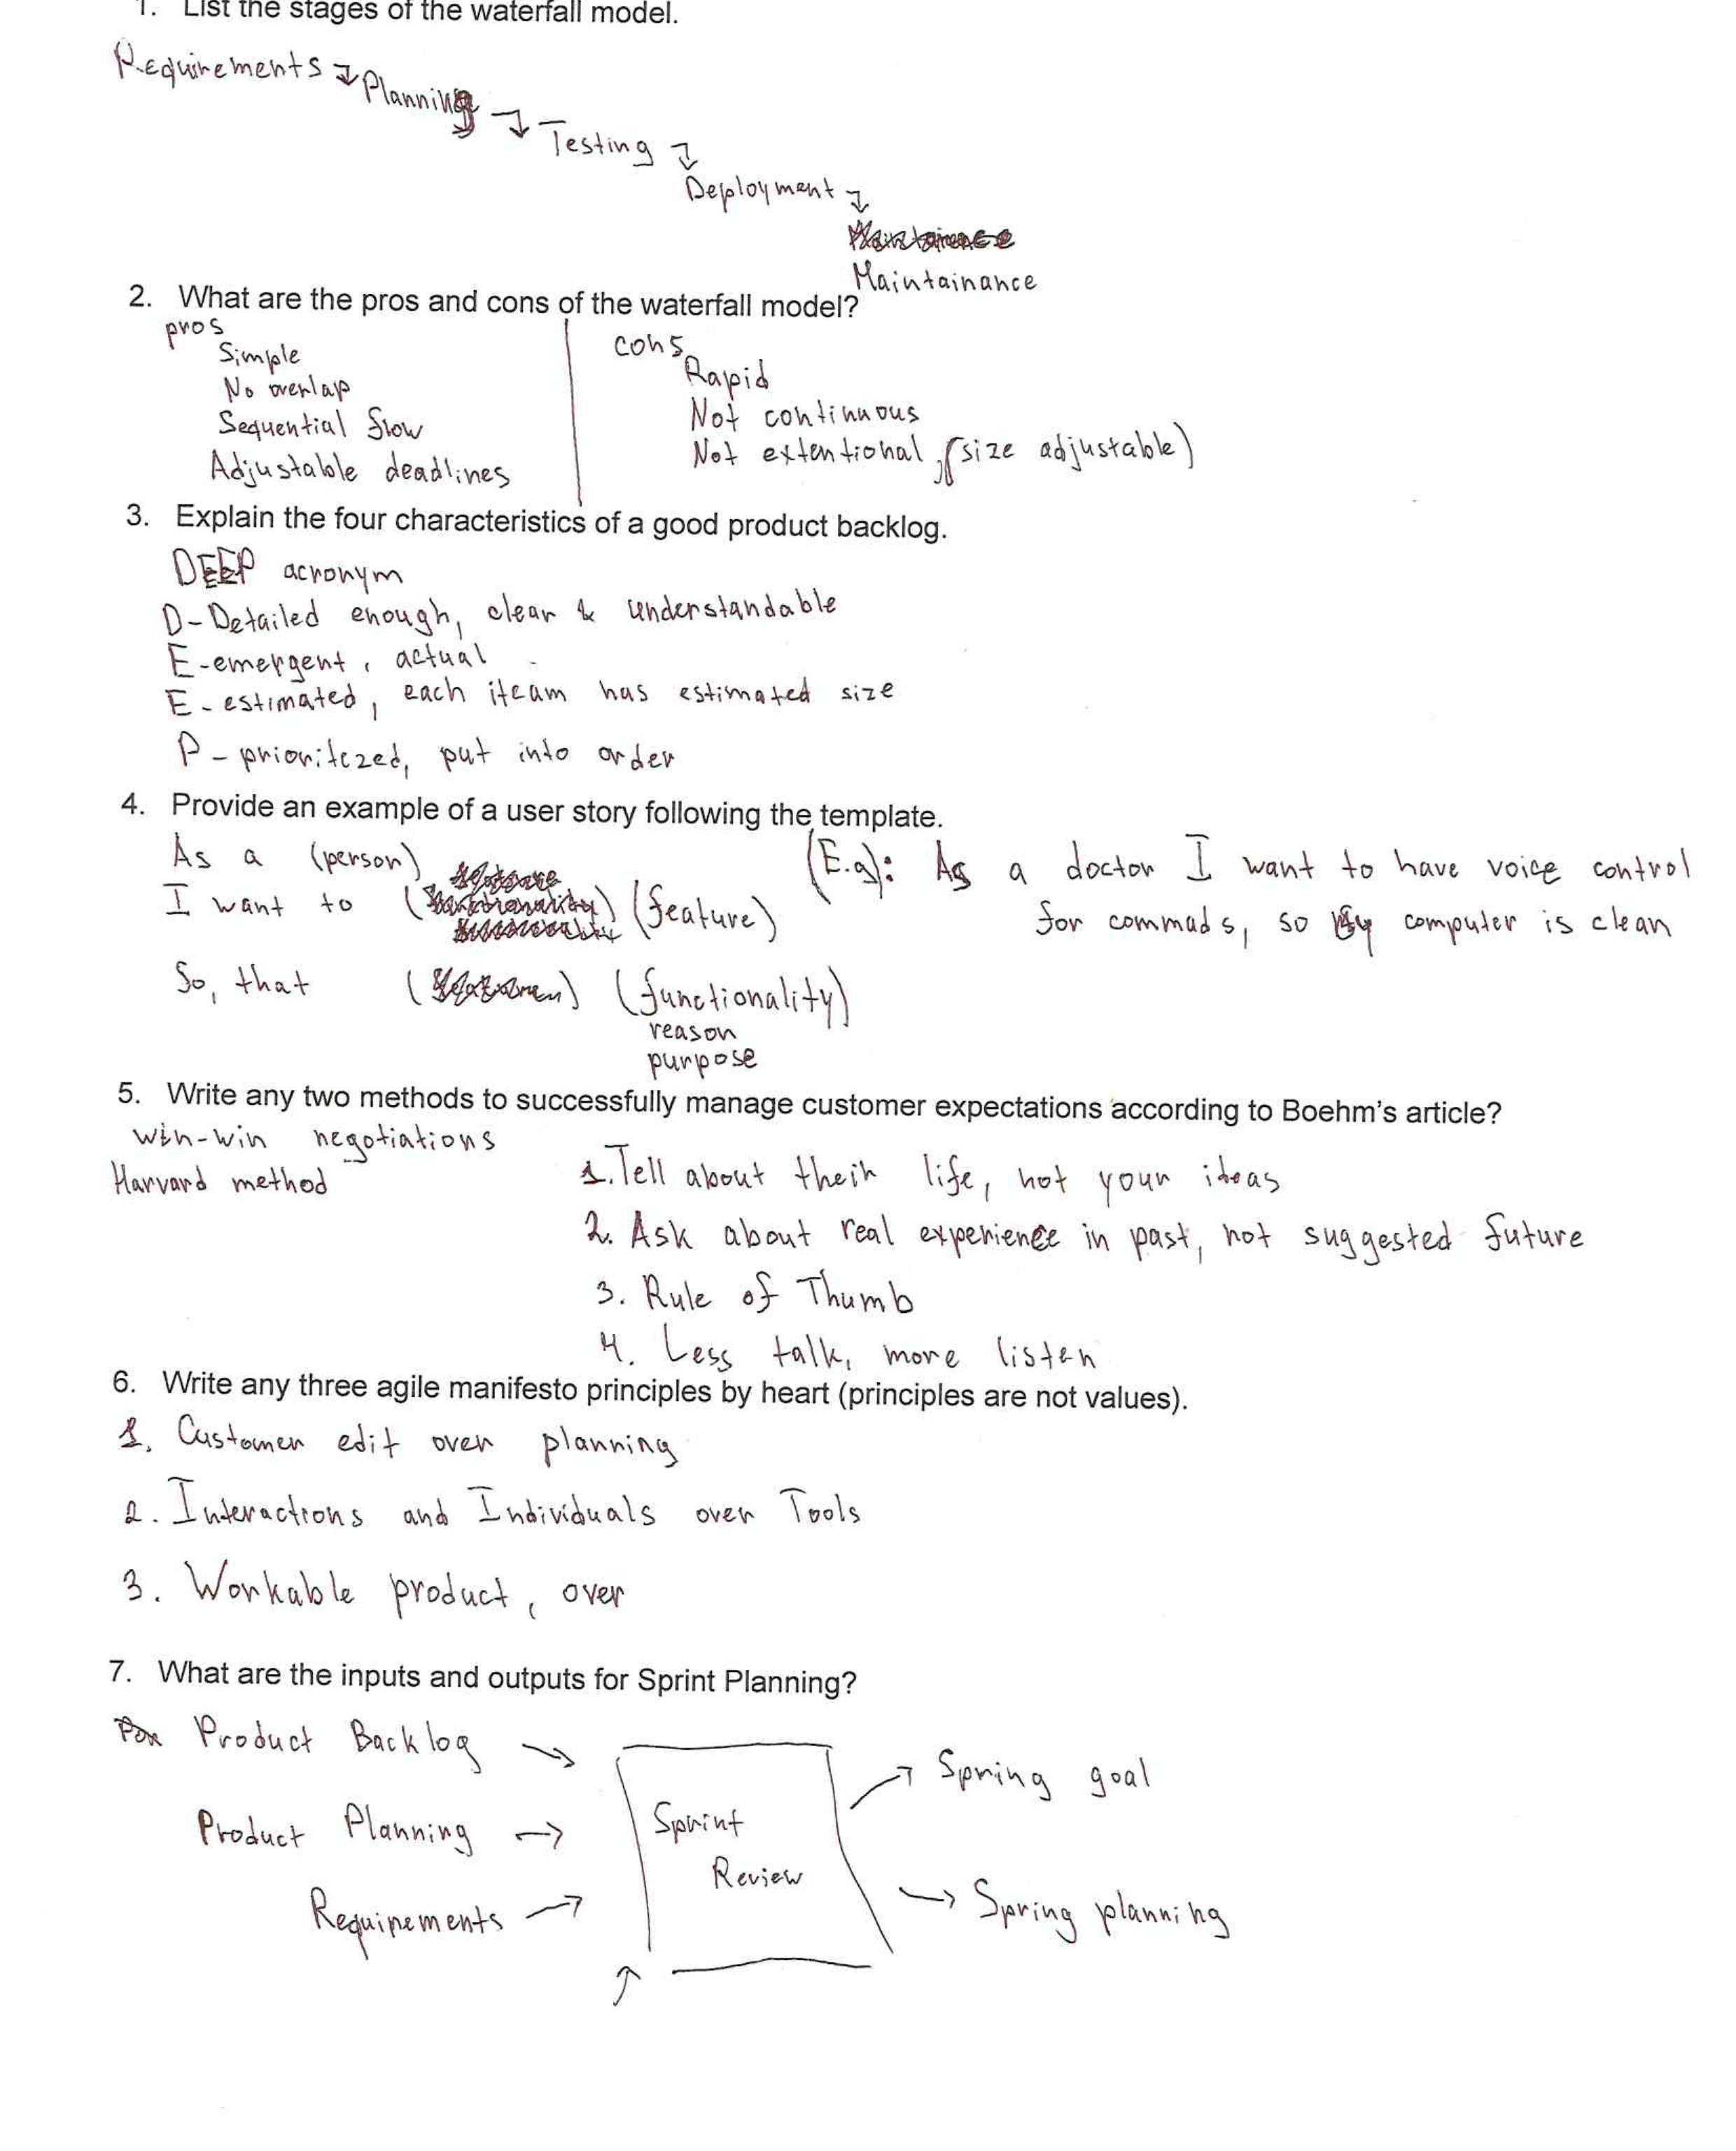 1. List the stages of the waterfall model.
Requirements
Planning
Testing
Deployment
Maintainance
2. What are the pros and cons of the waterfall model?
pros
Simple
No overlap
Sequential flow
Adjustable deadlines
cons
Rapid
Not continuous
Not extentional, (size adjustable)
3. Explain the four characteristics of a good product backlog.
DEEP acronym
D-Detailed enough, clear & understandable
E-emergent, actual
E-estimated, each iteam has estimated size
P-prioritczed, put into order
4. Provide an example of a user story following the template.
As a (person)
I want to (feature)
So, that (functionality)
reason
purpose
(E.g): As a doctor I want to have voice control
for commads, so my computer is clean
5. Write any two methods to successfully manage customer expectations according to Boehm's article?
win-win negotiations
Harvard method
1. Tell about their life, not your ideas
2. Ask about real experience in past, not suggested future
3. Rule of Thumb
4. Less talk, more listen
6. Write any three agile manifesto principles by heart (principles are not values).
1. Customer edit over planning
2. Interactions and Individuals over Tools
3. Workable product, over
7. What are the inputs and outputs for Sprint Planning?
Product Backlog
Product Planning
Requirements
Sprint
Review
Spring goal
Spring planning